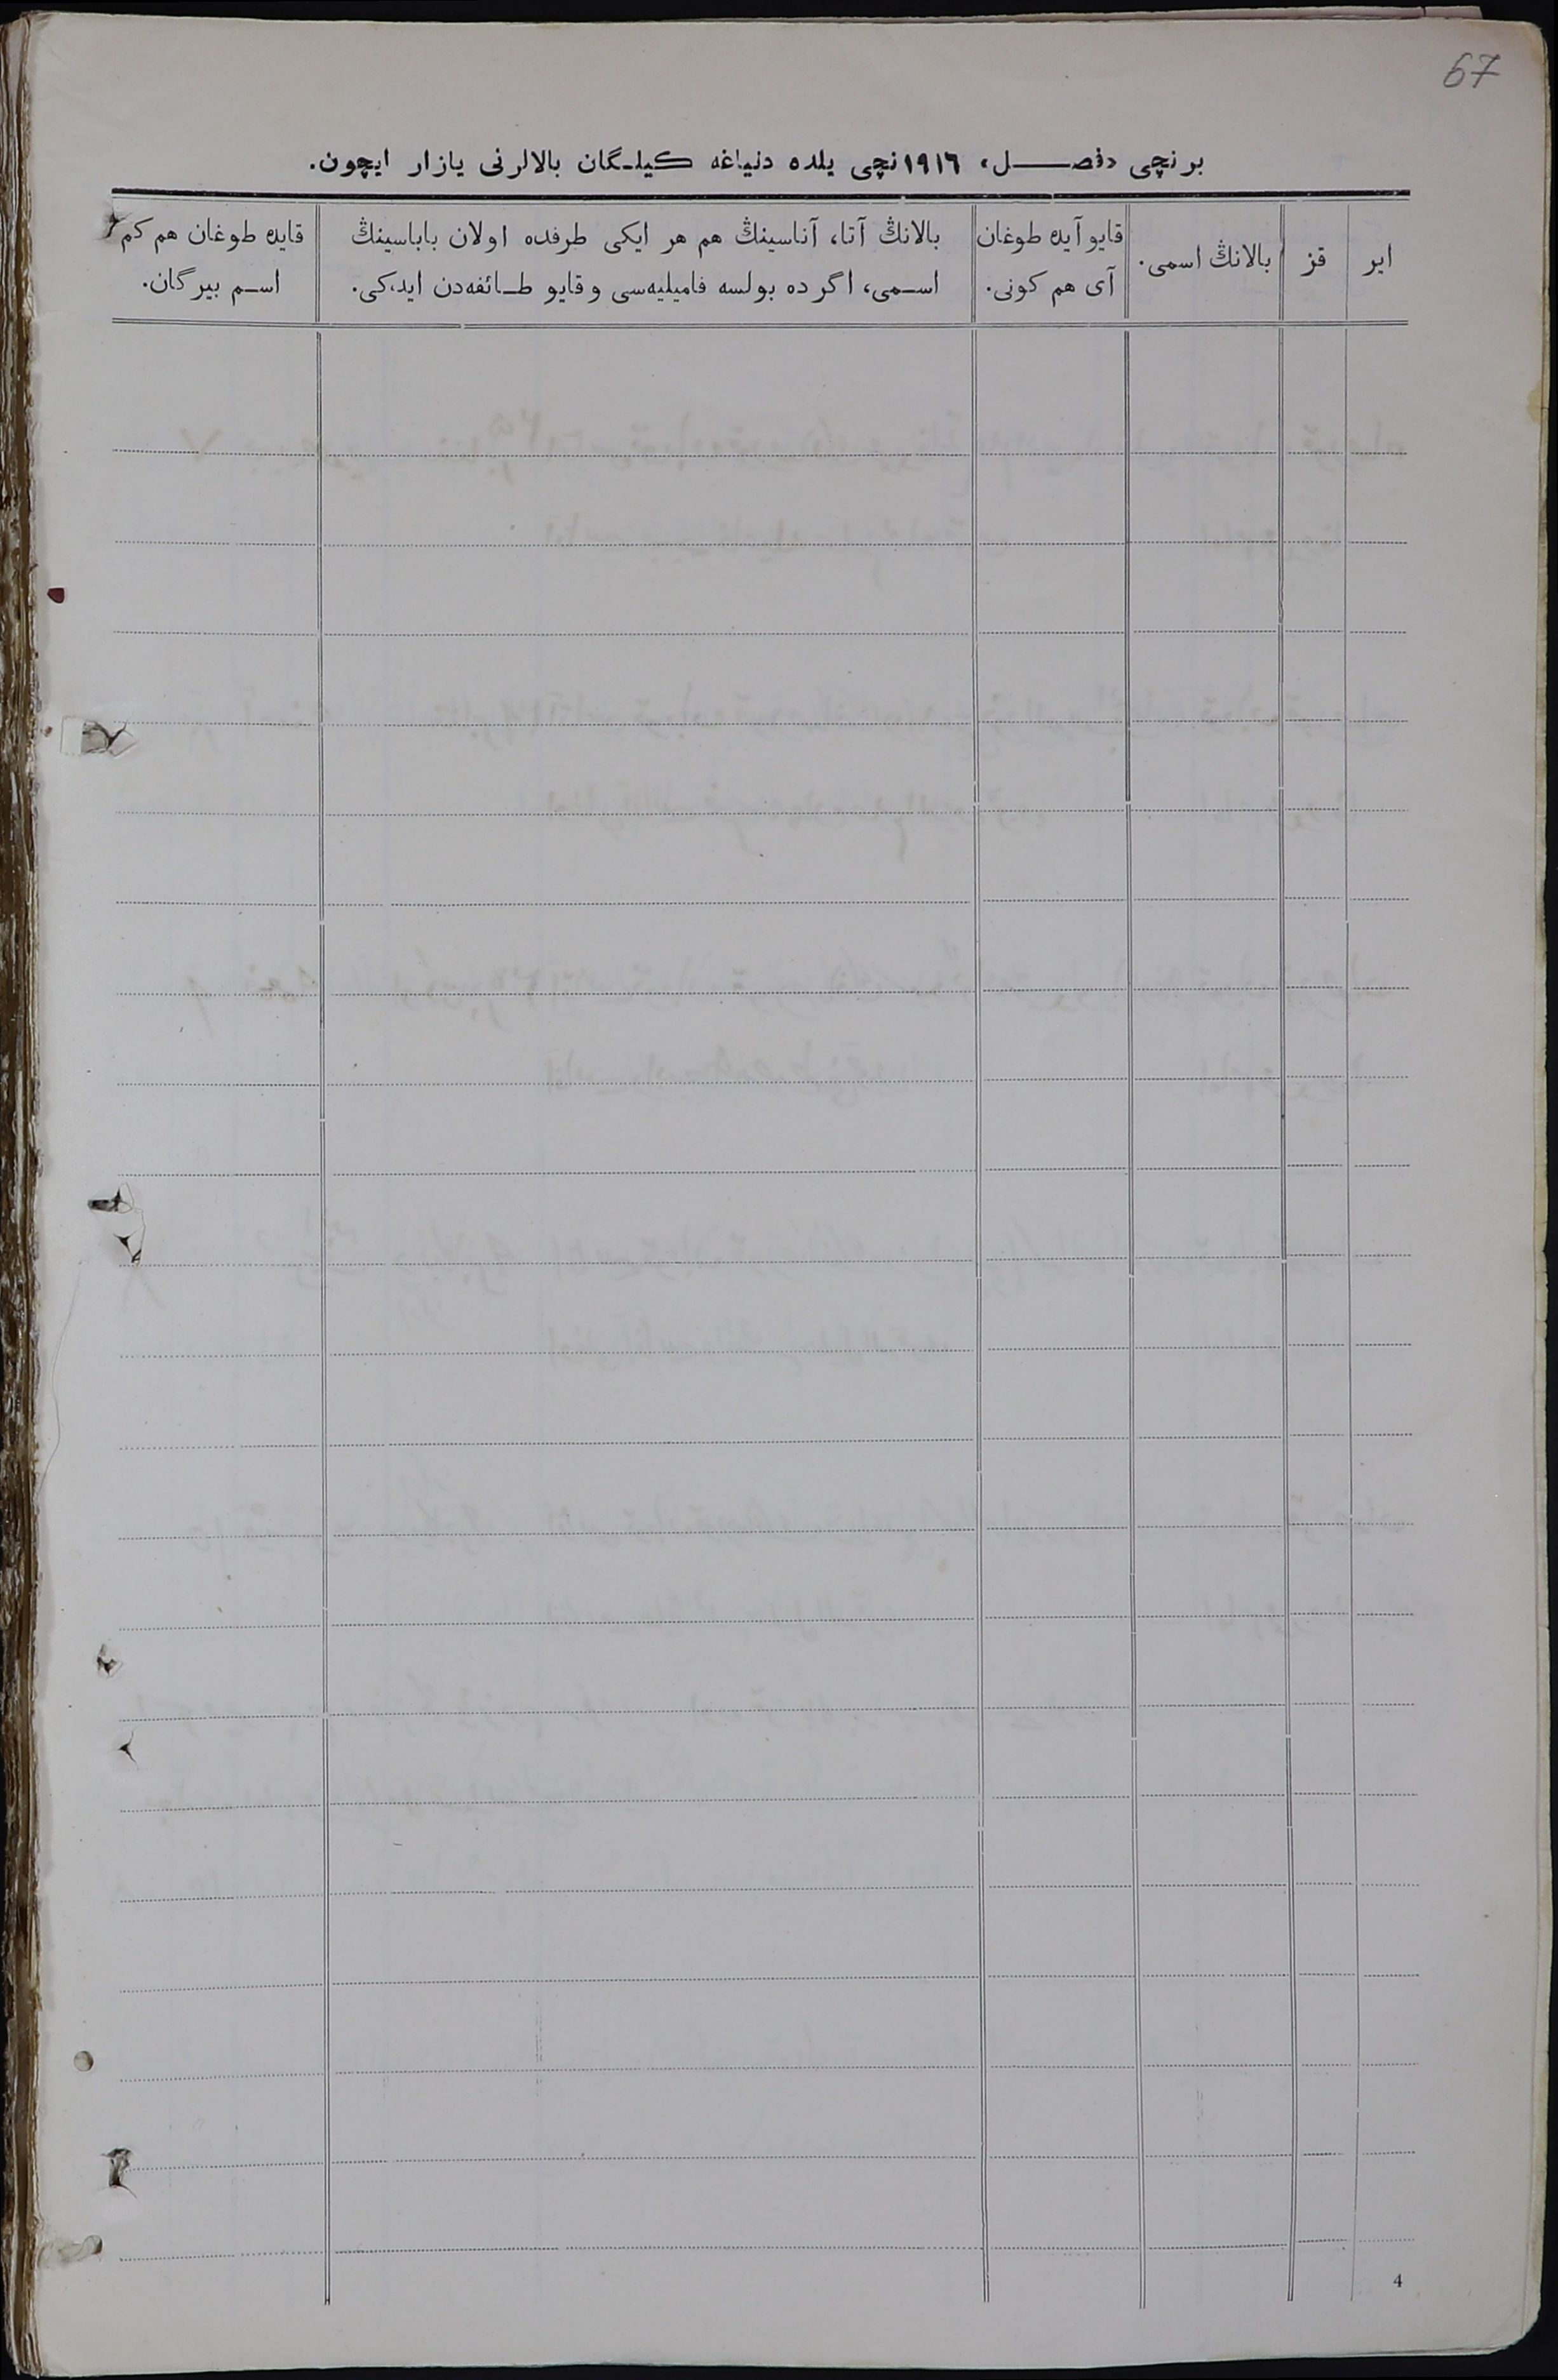 67
برنچی «فصل» ١٩١٦نچی یلده دنیاغه کیلگان بالالرنی یازار ایچون.
ایر
قز
بالانڭ اسمی.
قایو آیده طوغان
آی هم کونی.
بالانڭ آتا، آناسینڭ هم هر ایکی طرفده اولان باباسینڭ
اسمی، اگر ده بولسه فامیلیه‌سی و قایو طائفه‌دن ایدکی.
قایده طوغان هم کم
اسم بیرگان.
4